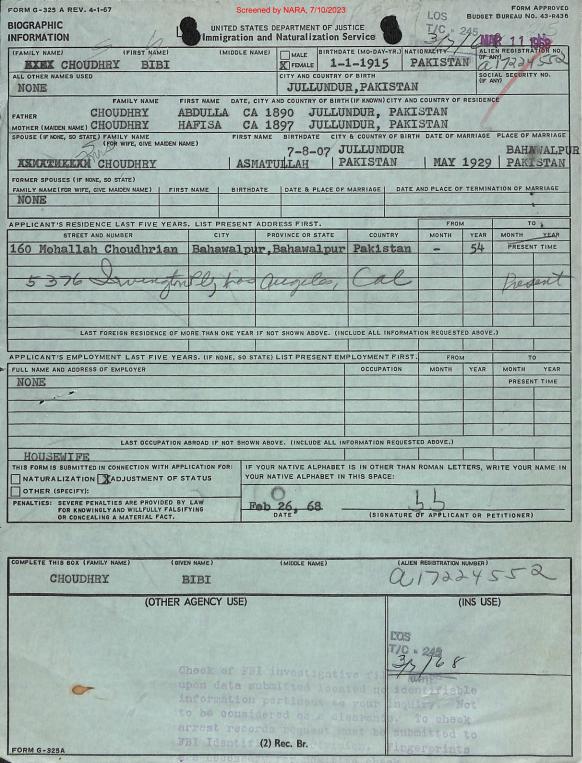 FORM G-325 A REV. 4-1-67
Screened by NARA, 7/10/2023
FORM APPROVED
BUDGET BUREAU NO. 43-R436
BIOGRAPHIC
INFORMATION
UNITED STATES DEPARTMENT OF JUSTICE
Immigration and Naturalization Service
LOS
T/C - 245
MAR 11 1968
(FAMILY NAME) (FIRST NAME) (MIDDLE NAME) MALE FEMALE BIRTHDATE (MO-DAY-YR.) NATIONALITY ALIEN REGISTRATION NO. (IF ANY)
CHOUDHRY BIBI X 1-1-1915 PAKISTAN a17224552
ALL OTHER NAMES USED CITY AND COUNTRY OF BIRTH SOCIAL SECURITY NO. (IF ANY)
NONE JULLUNDUR,PAKISTAN
FAMILY NAME FIRST NAME DATE, CITY AND COUNTRY OF BIRTH (IF KNOWN) CITY AND COUNTRY OF RESIDENCE
FATHER CHOUDHRY ABDULLA CA 1890 JULLUNDUR, PAKISTAN
MOTHER (MAIDEN NAME) CHOUDHRY HAFISA CA 1897 JULLUNDUR, PAKISTAN
SPOUSE (IF NONE, SO STATE) FAMILY NAME (FOR WIFE, GIVE MAIDEN NAME) FIRST NAME BIRTHDATE CITY & COUNTRY OF BIRTH DATE OF MARRIAGE PLACE OF MARRIAGE
7-8-07 JULLUNDUR BAHAWALPUR
CHOUDHRY ASMATULLAH PAKISTAN MAY 1929 PAKISTAN
FORMER SPOUSES (IF NONE, SO STATE)
FAMILY NAME (FOR WIFE, GIVE MAIDEN NAME) FIRST NAME BIRTHDATE DATE & PLACE OF MARRIAGE DATE AND PLACE OF TERMINATION OF MARRIAGE
NONE
APPLICANT'S RESIDENCE LAST FIVE YEARS. LIST PRESENT ADDRESS FIRST. FROM TO
STREET AND NUMBER CITY PROVINCE OR STATE COUNTRY MONTH YEAR MONTH YEAR
160 Mohallah Choudhrian Bahawalpur,Bahawalpur Pakistan - 54 PRESENT TIME
5376 Irvington Pl, Los Angeles, Cal Present
LAST FOREIGN RESIDENCE OF MORE THAN ONE YEAR IF NOT SHOWN ABOVE. (INCLUDE ALL INFORMATION REQUESTED ABOVE.)
APPLICANT'S EMPLOYMENT LAST FIVE YEARS. (IF NONE, SO STATE) LIST PRESENT EMPLOYMENT FIRST. FROM TO
FULL NAME AND ADDRESS OF EMPLOYER OCCUPATION MONTH YEAR MONTH YEAR
NONE PRESENT TIME
LAST OCCUPATION ABROAD IF NOT SHOWN ABOVE. (INCLUDE ALL INFORMATION REQUESTED ABOVE.)
HOUSEWIFE
THIS FORM IS SUBMITTED IN CONNECTION WITH APPLICATION FOR:
NATURALIZATION X ADJUSTMENT OF STATUS
OTHER (SPECIFY):
IF YOUR NATIVE ALPHABET IS IN OTHER THAN ROMAN LETTERS, WRITE YOUR NAME IN
YOUR NATIVE ALPHABET IN THIS SPACE:
PENALTIES: SEVERE PENALTIES ARE PROVIDED BY LAW
FOR KNOWINGLY AND WILLFULLY FALSIFYING
OR CONCEALING A MATERIAL FACT.
Feb 26, 68
DATE (SIGNATURE OF APPLICANT OR PETITIONER)
COMPLETE THIS BOX (FAMILY NAME) (GIVEN NAME) (MIDDLE NAME) (ALIEN REGISTRATION NUMBER)
CHOUDHRY BIBI a17224552
(OTHER AGENCY USE) (INS USE)
LOS
T/C - 245
3/5/68
Check of FBI investigative
upon data submitted located no identifiable
information pertinent to your inquiry. Not
to be considered as a clearance. To check
arrest records request must be submitted to
FBI fingerprints
(2) Rec. Br.
FORM G-325A